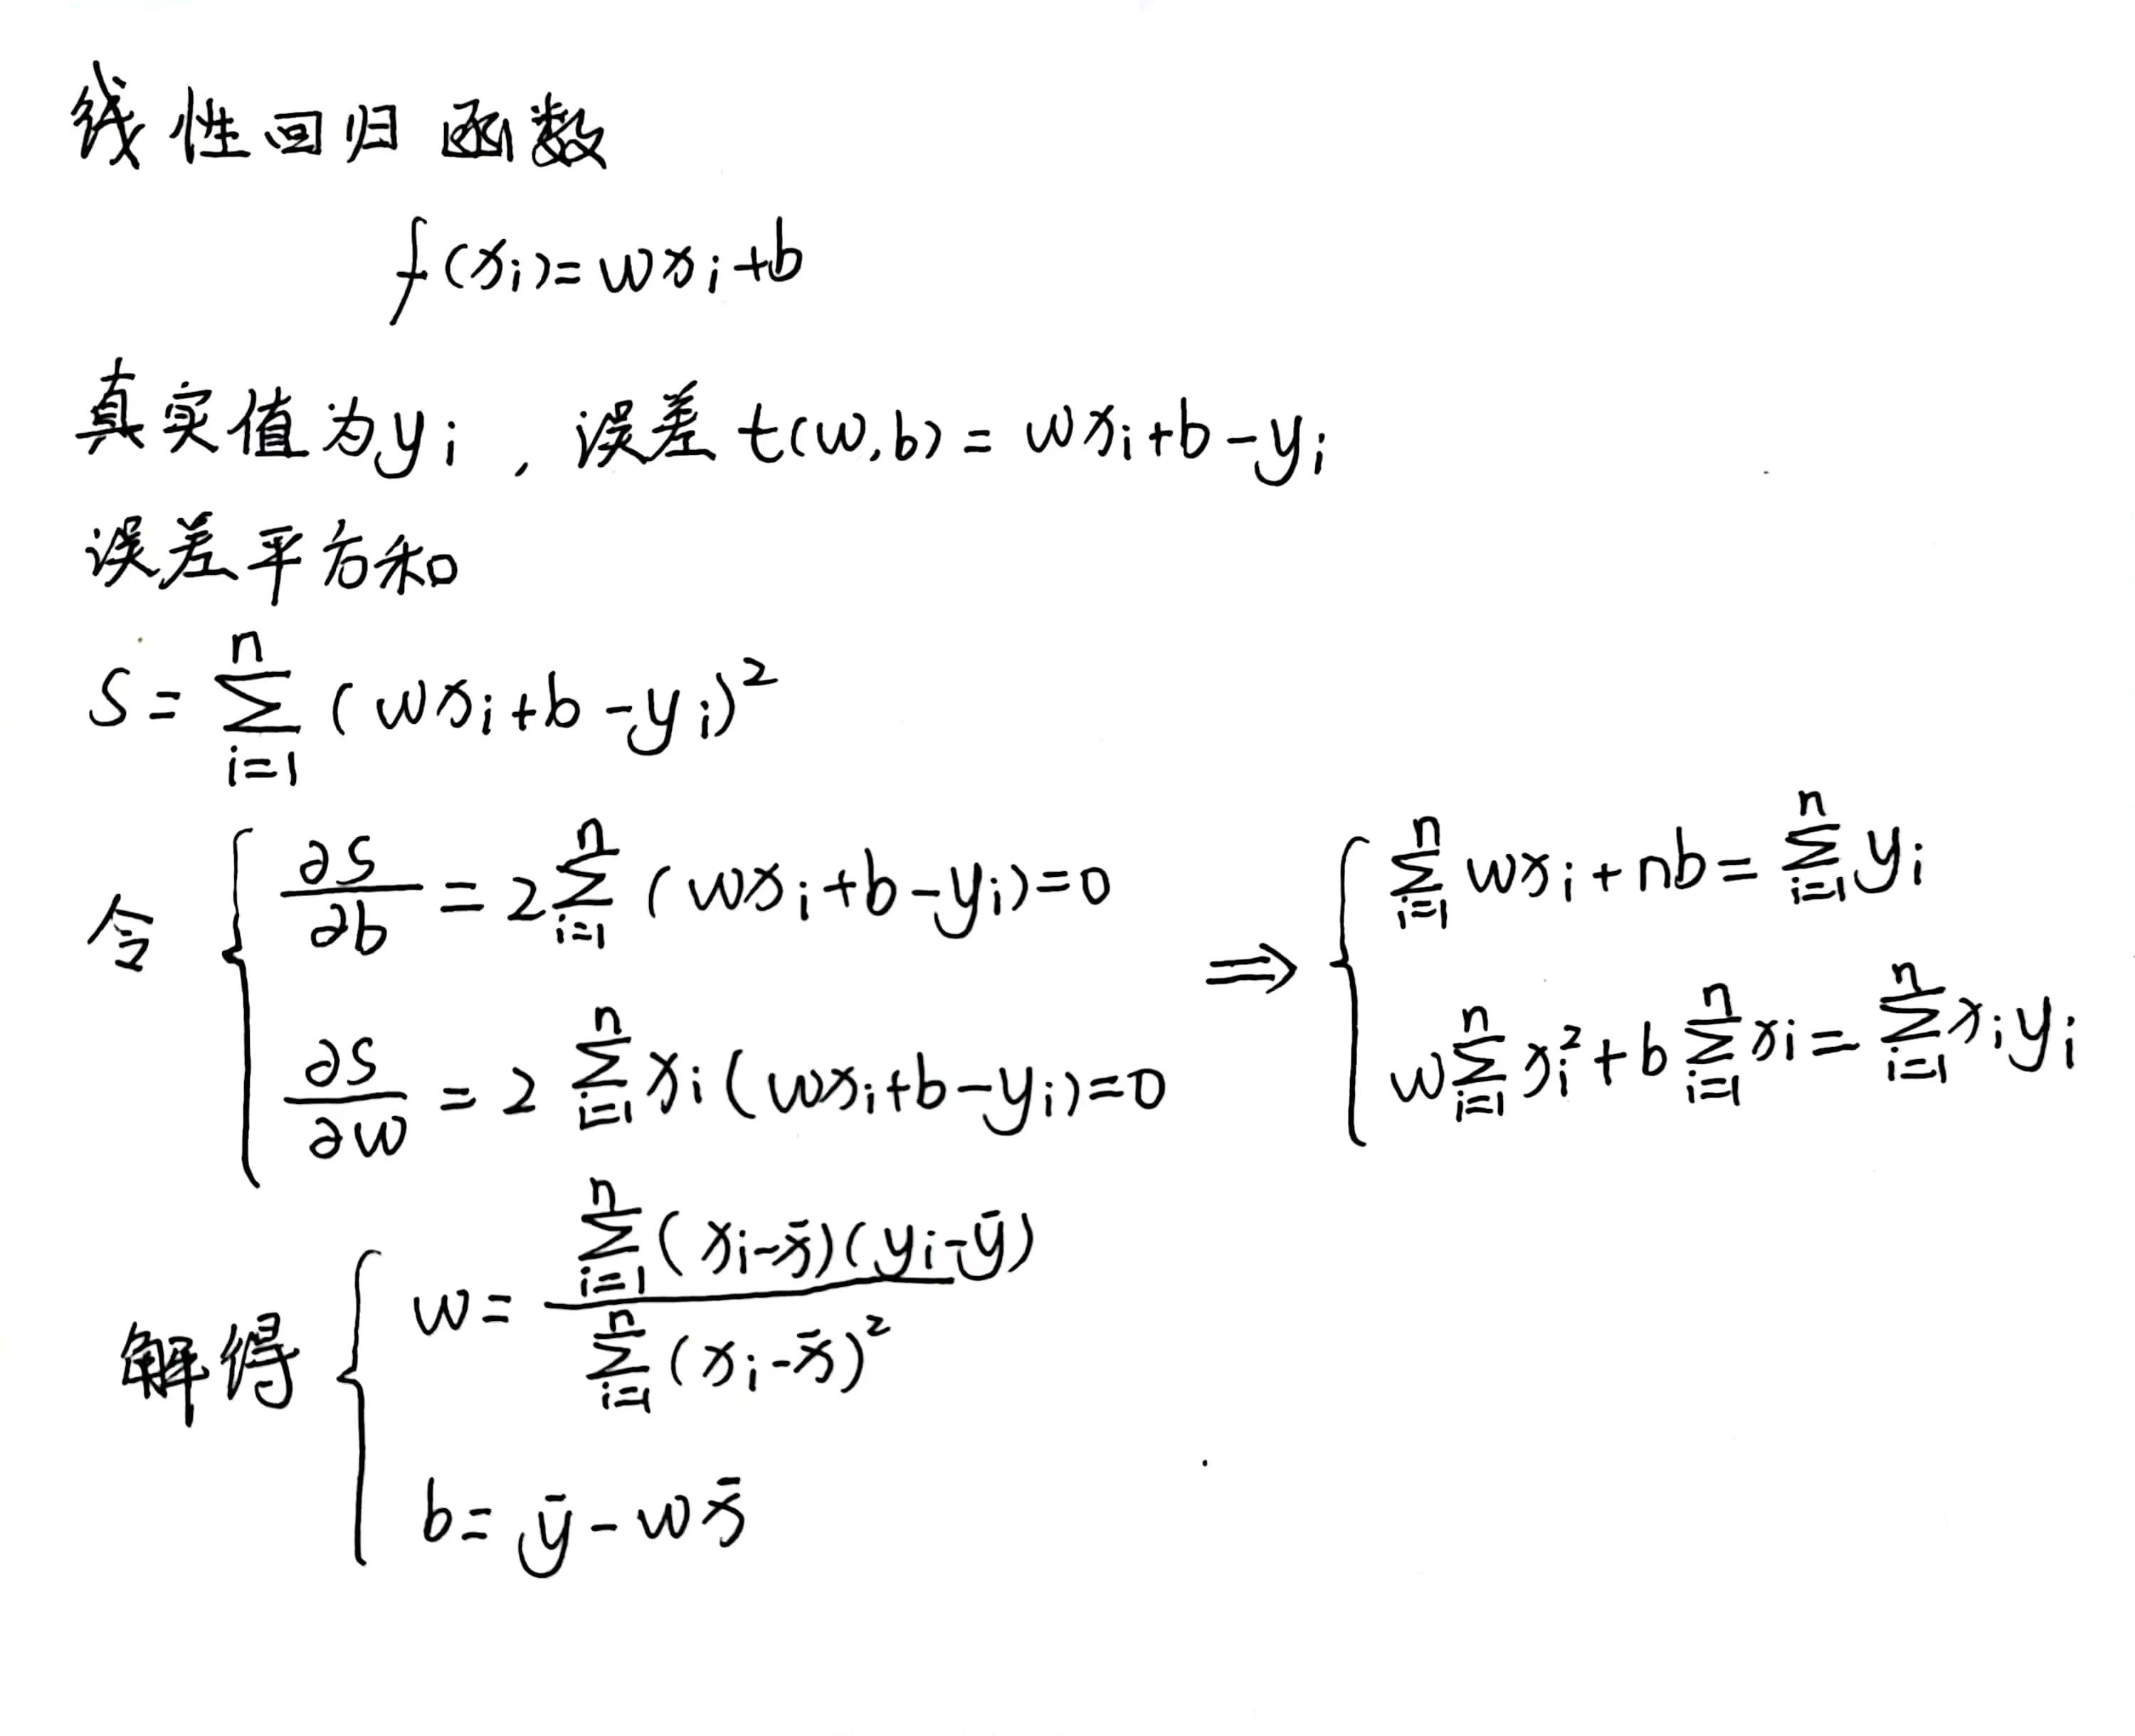 线性回归函数
f(xi)=wxi+b
真实值为yi，误差 t(w,b)=wxi+b-yi
误差平方和
S=∑_{i=1}^{n}(wxi+b-yi)²
令 { ∂S/∂b=2∑_{i=1}^{n}(wxi+b-yi)=0 ⇒ { ∑_{i=1}^{n}wxi+nb=∑_{i=1}^{n}yi
∂S/∂w=2∑_{i=1}^{n}xi(wxi+b-yi)=0 w∑_{i=1}^{n}xi²+b∑_{i=1}^{n}xi=∑_{i=1}^{n}xiyi
解得 { w=∑_{i=1}^{n}(xi-x̄)(yi-ȳ)/∑_{i=1}^{n}(xi-x̄)²
b=ȳ-wx̄